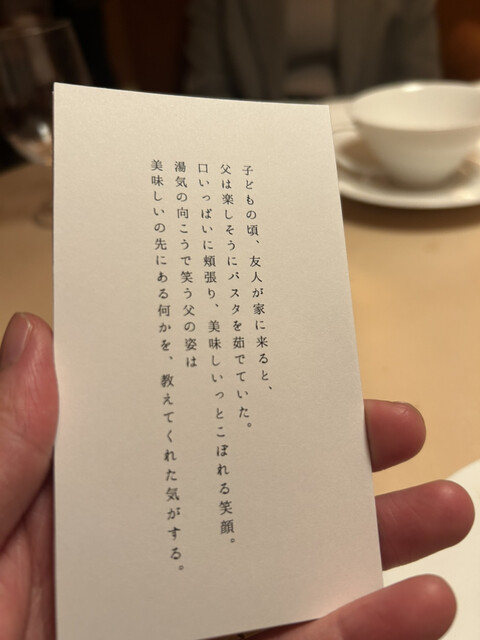 子どもの頃、友人が家に来ると、
父は楽しそうにパスタを茹でていた。
口いっぱいに頬張り、美味しいっとこぼれる笑顔。
湯気の向こうで笑う父の姿は
美味しいの先にある何かを、教えてくれた気がする。